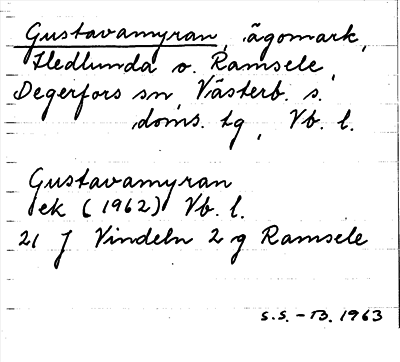 Gustavamyran, ägomark,
Hedlunda o. Ramsele,
Degerfors sn, Västerb. s.
doms. tg, Vb. l.
Gustavamyran
ek (1962) Vb. l.
21 J Vindeln 2 g Ramsele
S.S. - B. 1963